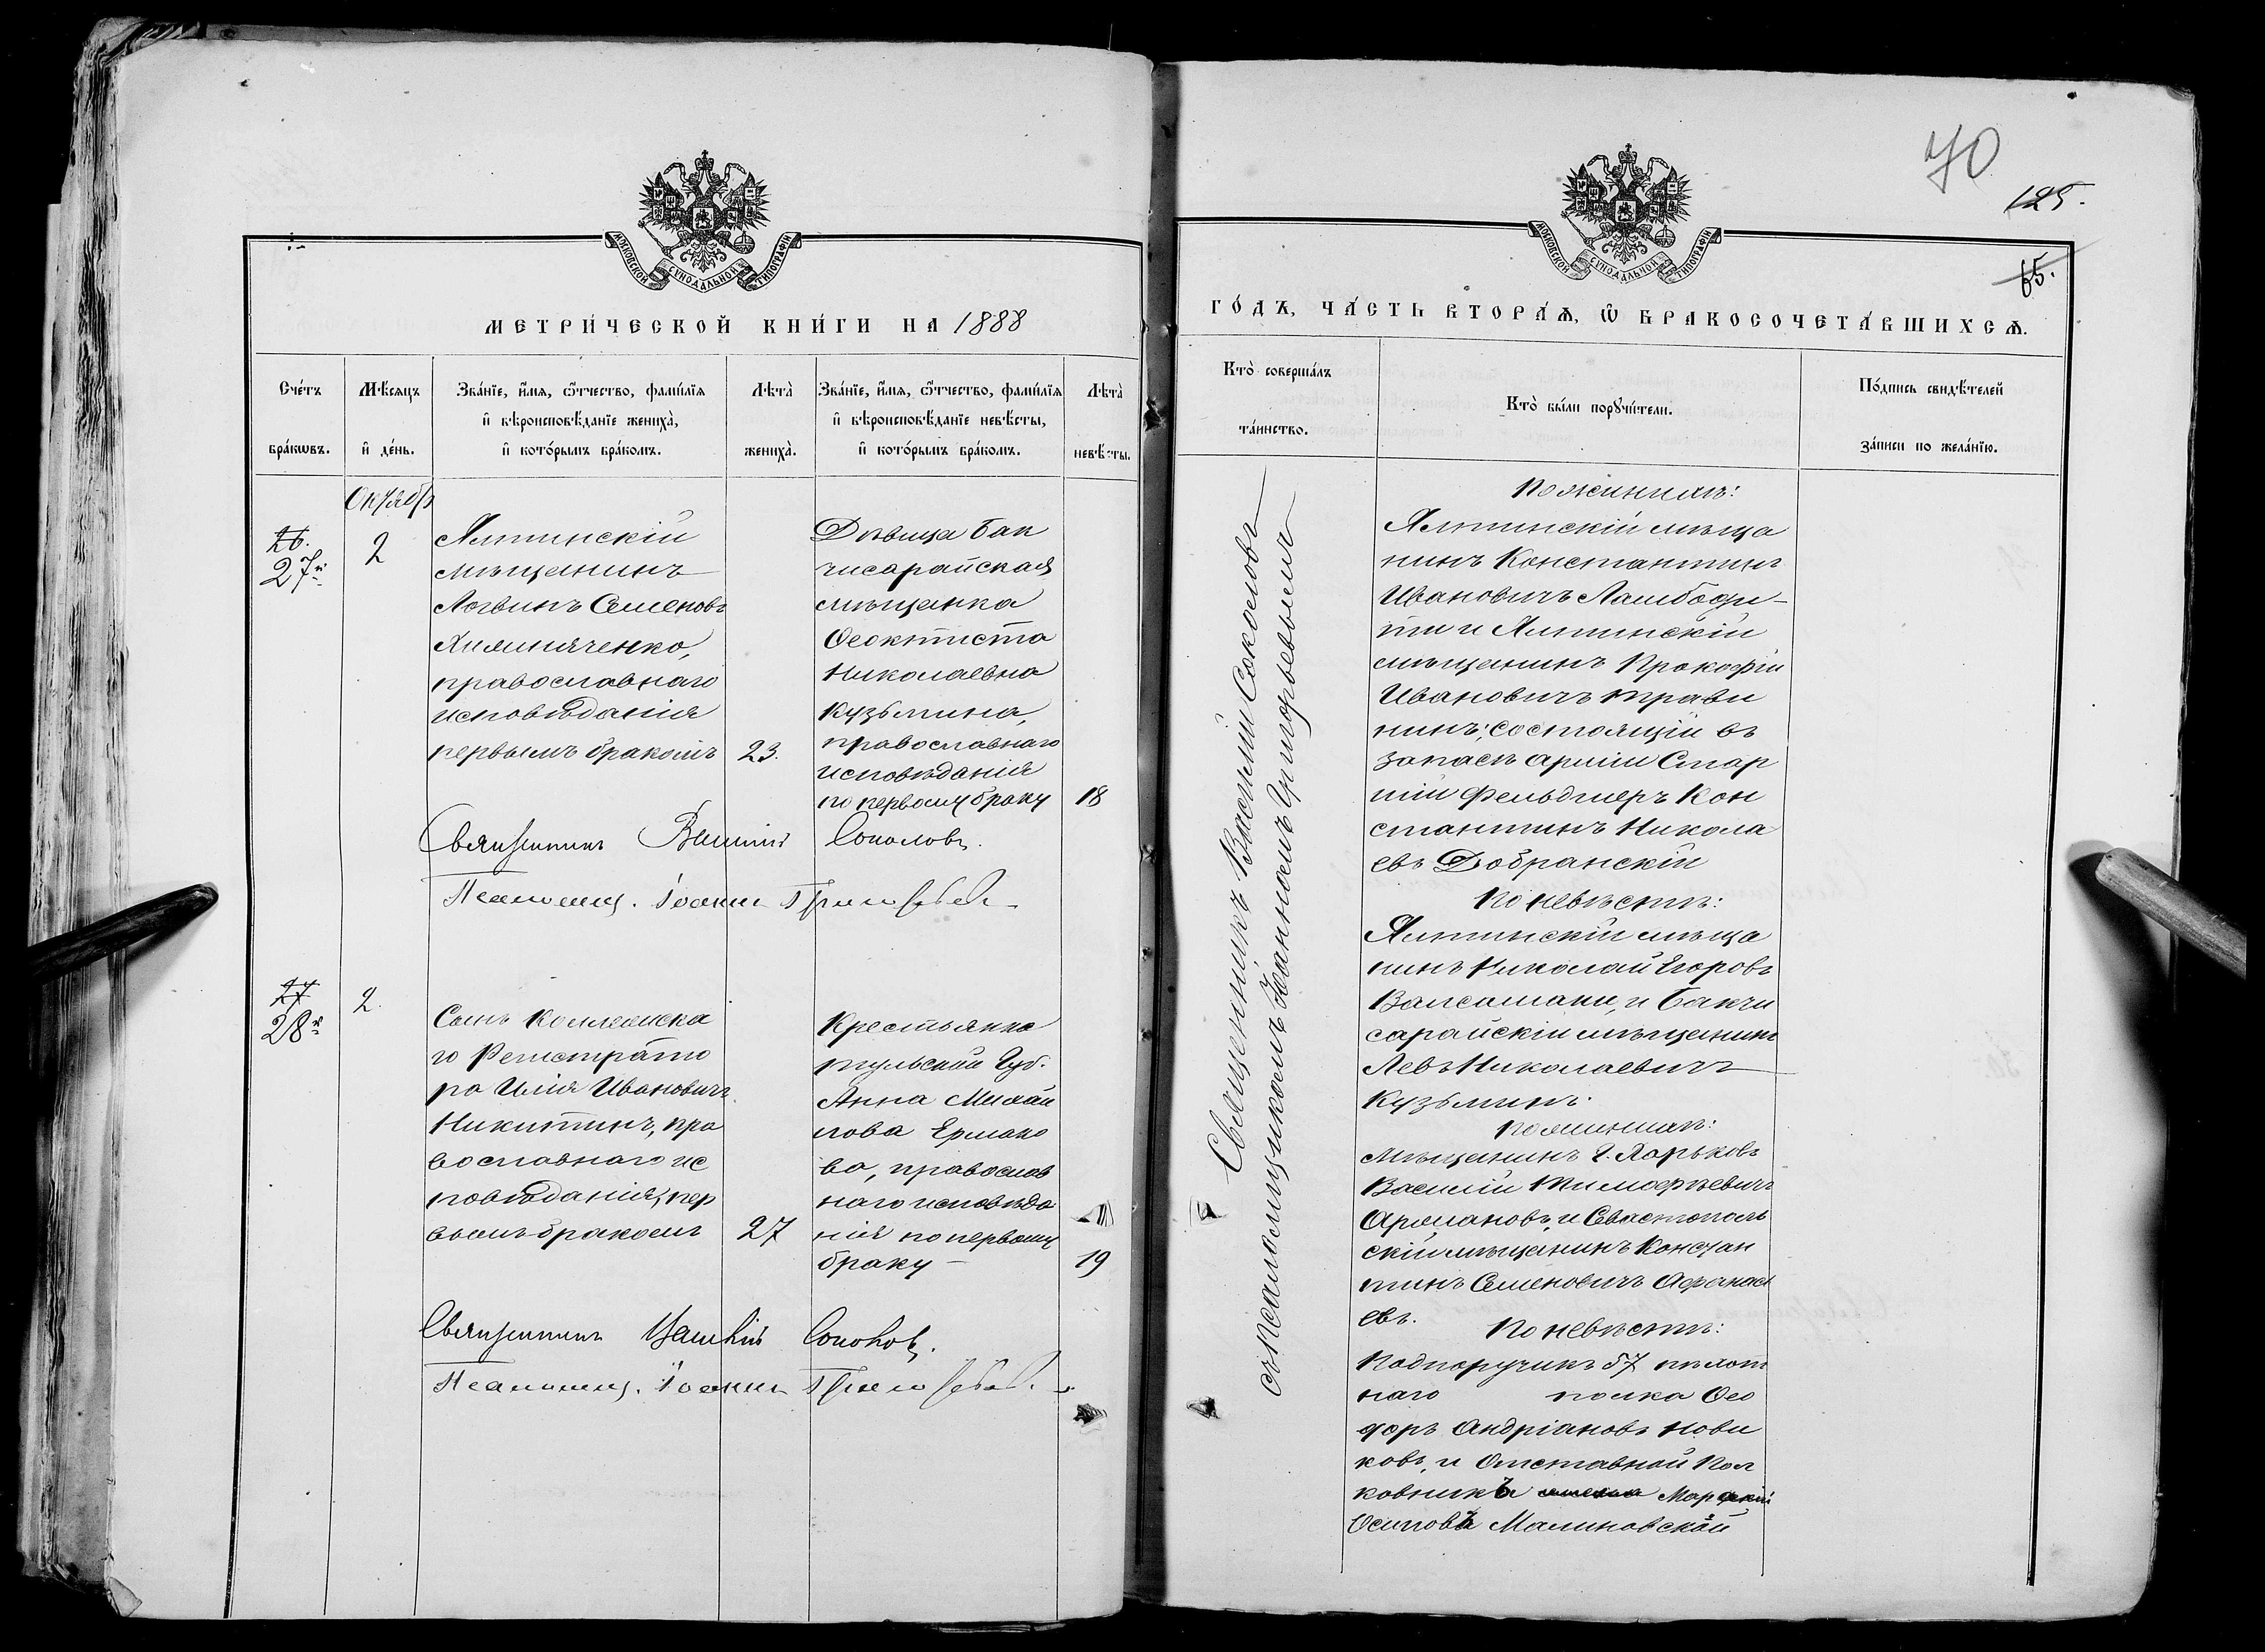 МОСКОВСКОЙ СѴНОДАЛЬНОЙ ТИПОГРАФІИ
МЕТРИ́ЧЕСКОЙ КНИ́ГИ НА 1888
Сче́тъ бра́кѡвъ.
Мѣ́сяцъ и҆ де́нь.
Зва́нїе, и҆́мя, ѻ҆́тчество, фами́лїя
и҆ вѣроисповѣ́данїе жениха̀,
и҆ кото́рымъ бра́комъ.
Лѣта̀ жениха̀.
Зва́нїе, и҆́мя, ѻ҆́тчество, фами́лїя
и҆ вѣроисповѣ́данїе невѣ́сты,
и҆ кото́рымъ бра́комъ.
Лѣта̀ невѣ́сты.
Октябр
26.
27й
2
Ялтинскій
мѣщанинъ
Логвинъ Семеновъ
Химиченко,
православнаго
исповѣданія
первымъ бракомъ
23.
Дѣвица Бак
чисарайская
мѣщанка
Ѳеоктиста
Николаевна
Кузьмина,
православнаго
исповѣданія
по первому браку
18
Священникъ Василій Соколовъ.
Псаломщ. Іоаннъ Григорьевъ
27
28й
2.
Сынъ Коллежска
го Регистрато
ра Илія Ивановичъ
Никитинъ, пра
вославнаго ис
повѣданія, пер
вымъ бракомъ
27
Крестьянка
Тульской Губ.
Анна Михай
лова Ермако
ва, православ
наго исповѣда
нія по первому
браку
19
Священникъ Василій Соколовъ.
Псаломщ. Іоаннъ Григорьевъ.
70
125.
65.
МОСКОВСКОЙ СѴНОДАЛЬНОЙ ТИПОГРАФІИ
ГО́ДЪ, ЧА́СТЬ ВТОРА́Ѧ, Ѡ҆ БРАКОСОЧЕТА́ВШИХСѦ.
Кто̀ соверша́лъ
та́инство.
Кто̀ бы́ли порꙋчи́тели.
По́дпись свидѣ́телей
за́писи по жела́нїю.
Священникъ Василій Соколовъ
съ Псаломщикомъ Іоанномъ Григорьевымъ
По женихѣ:
Ялтинскій мѣща
нинъ Константинъ
Ивановичъ Ламбоци-
ти и Ялтинскій
мѣщанинъ Прокофій
Ивановичъ Трави
нинъ; состоящій въ
запасѣ арміи Стар
шій Фельдшеръ Кон
стантинъ Никола
евъ Добранскій
По невѣстѣ:
Ялтинскій мѣща
нинъ Николай Егоровъ
Валсамаки, и Бакчи
сарайскій мѣщанинъ
Левъ Николаевичъ
Кузьминъ.
По женихѣ:
Мѣщанинъ г. Харьковъ
Василій Тимофѣевичъ
Армановъ, и Севастополь
скій мѣщанинъ Констан
тинъ Семеновичъ Афанась
евъ.
По невѣстѣ:
Подпоручикъ 57 пѣхот
наго полка Ѳео
доръ Андріановъ Нови
ковъ, и Отставной Пол
ковникъ
Осиповъ Малиновскій